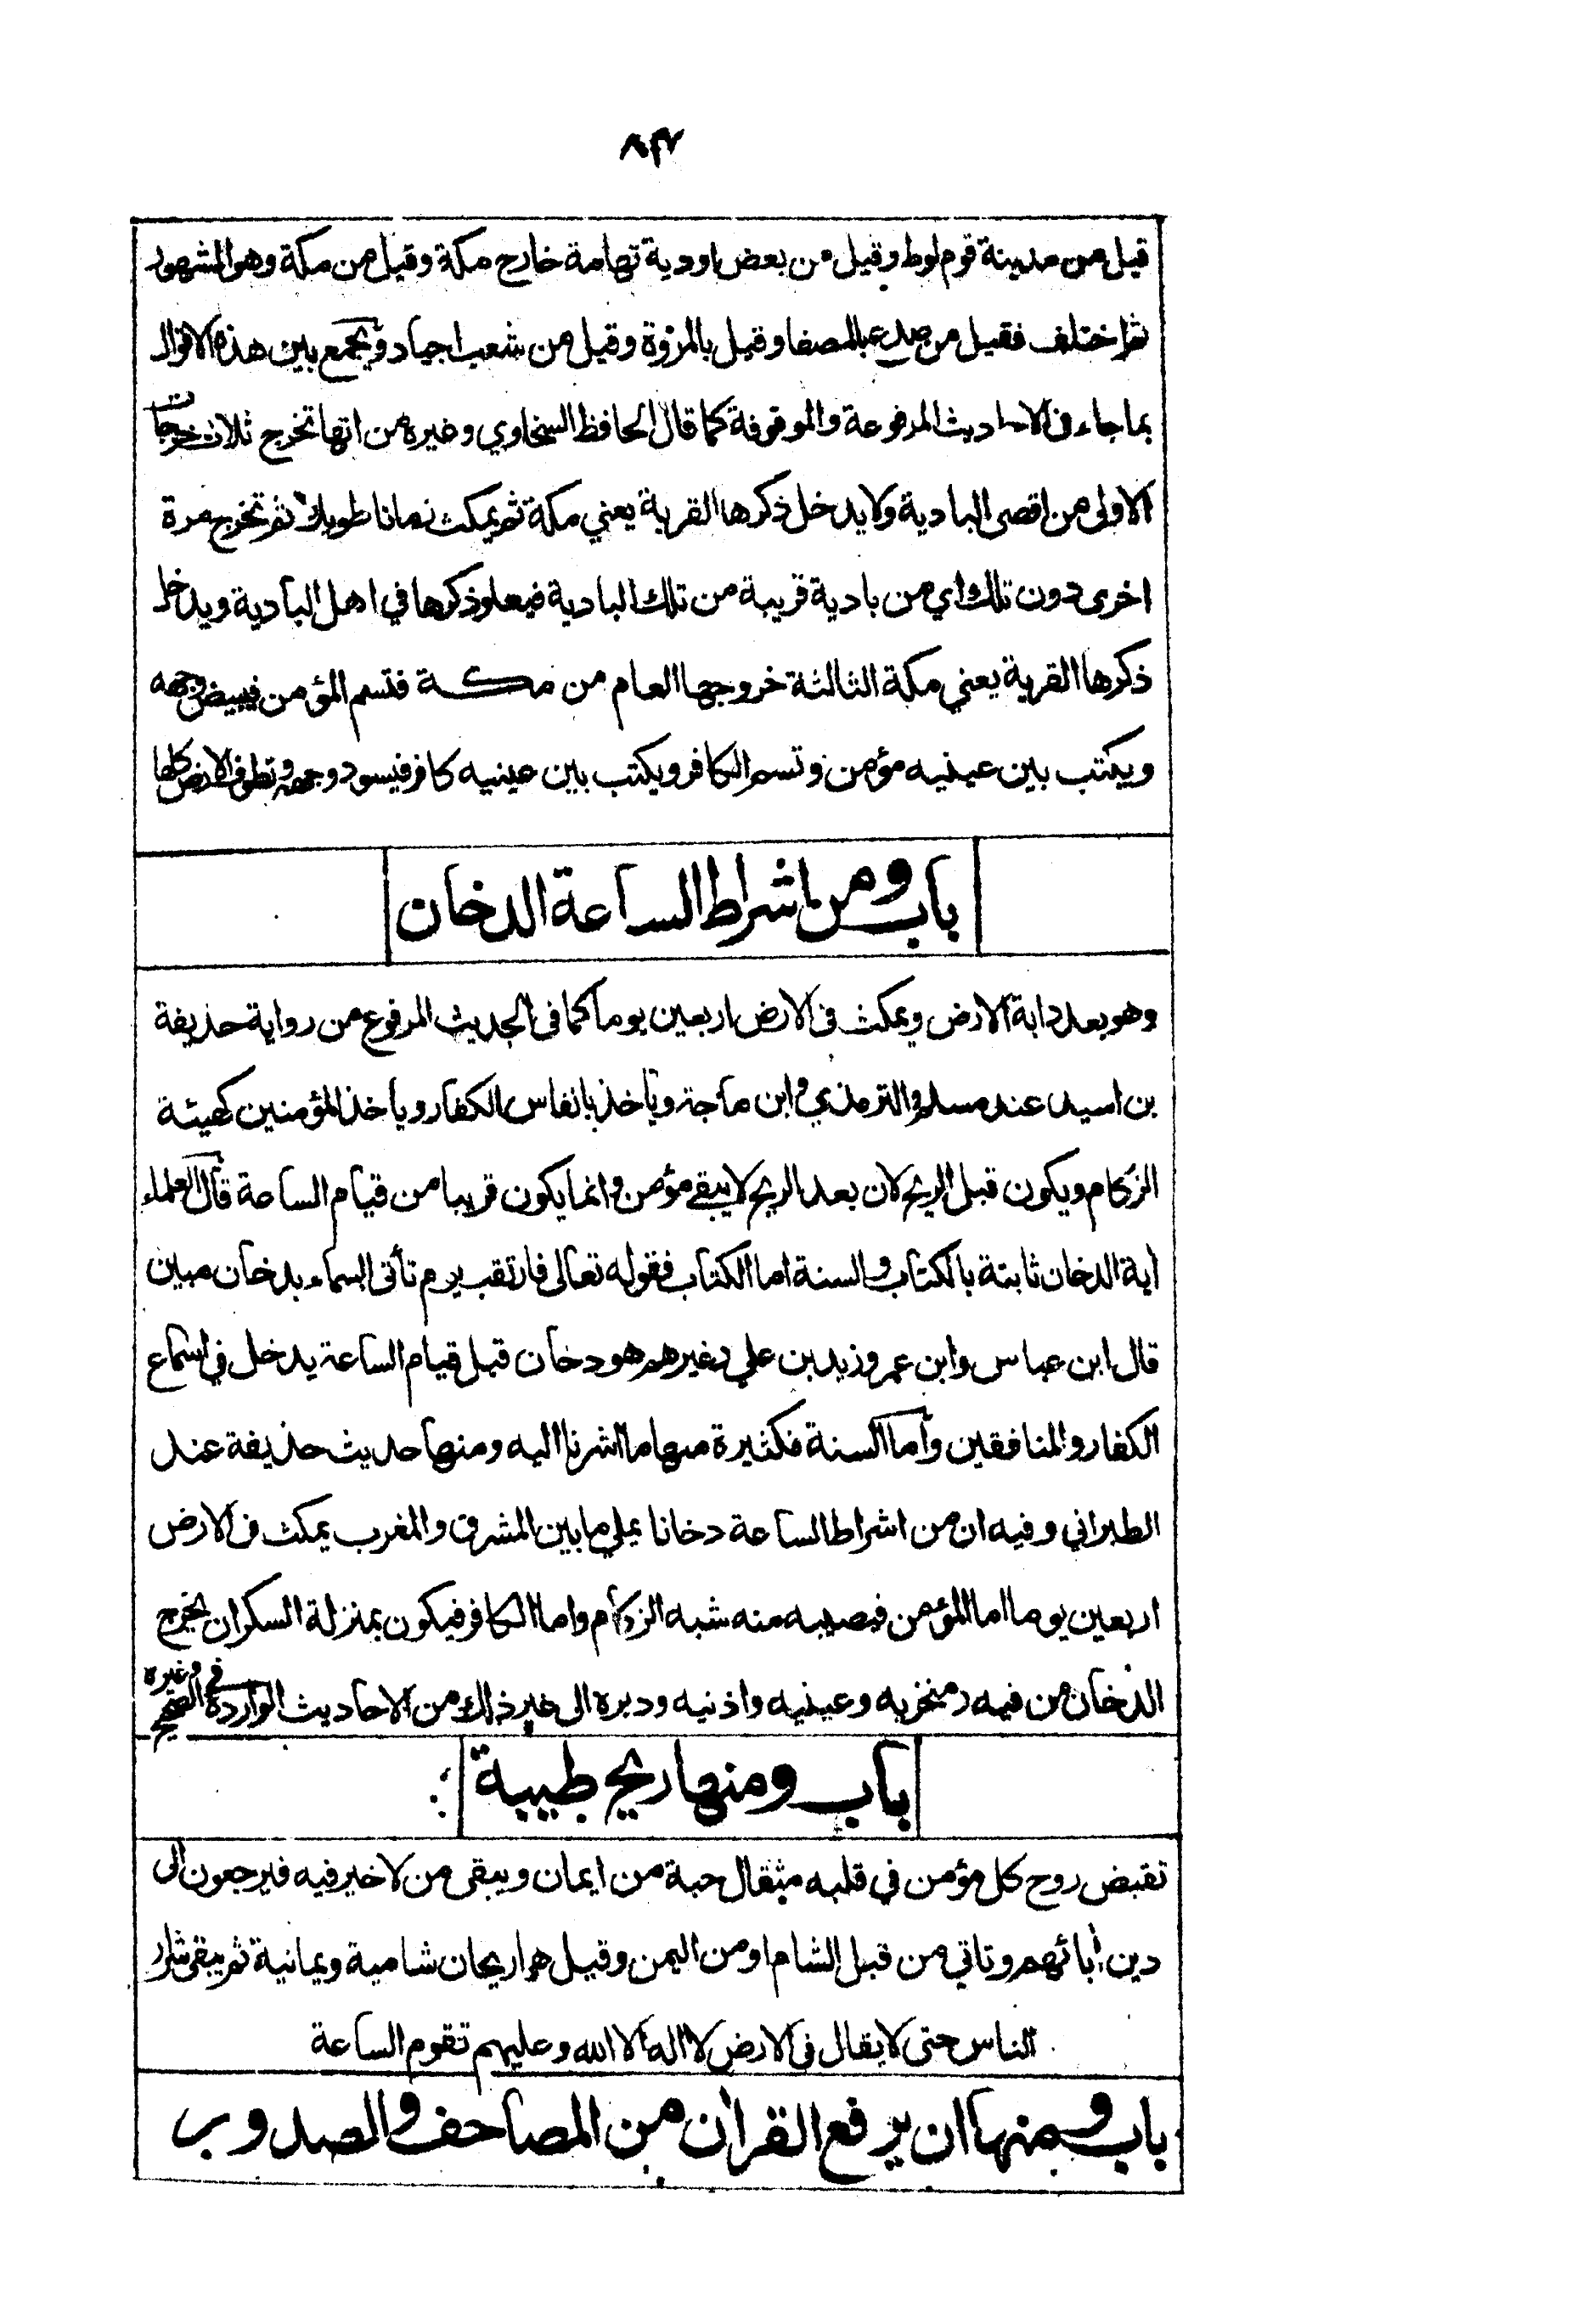 قيل من مدينة قوم لوط وقيل من بعض اودية تهامة خارج مكة وقيل من مكة وهو المشهور
ثم اختلف فقيل من صدع بالصفا وقيل بالمروة وقيل من شعب اجياد ويجمع بين هذه الاقوال
بما جاء فى الاحاديث المرفوعة والموقوفة كما قال الحافظ السخاوي وغيره من انها تخرج ثلاث خرجات
الاولى من اقصى البادية ولا يدخل ذكرها القرية يعني مكة ثم يمكث زمانا طويلا ثم تخرج مرة
اخرى دون تلك اي من بادية قريبة من تلك البادية فيعلو ذكرها في اهل البادية ويدخل
ذكرها القرية يعني مكة الثالثة خروجها العام من مكة فتسم المؤمن فيبيض وجهه
ويكتب بين عينيه مؤمن وتسم الكافر ويكتب بين عينيه كافر فيسود وجهه وتطوف الارض كلها
باب ومن اشراط الساعة الدخان
وهو بعد دابة الارض ويمكث فى الارض اربعين يوما كما فى الحديث المرفوع من رواية حذيفة
بن اسيد عند مسلم والترمذي وابن ماجة وياخذ بانفاس الكفار وياخذ المؤمنين كهيئة
الزكام ويكون قبل الريح لان بعد الريح لا يبقى مؤمن وانما يكون قريبا من قيام الساعة قال العلماء
اية الدخان ثابتة بالكتاب والسنة اما الكتاب فقوله تعالى فارتقب يوم تأتى السماء بدخان مبين
قال ابن عباس وابن عمر وزيد بن علي وغيرهم هو دخان قبل قيام الساعة يدخل في اسماع
الكفار والمنافقين وأما السنة فكثيرة منها ما اشرنا اليه ومنها حديث حذيفة عند
الطبراني وفيه ان من اشراط الساعة دخانا يملي ما بين المشرق والمغرب يمكث فى الارض
اربعين يوما اما المؤمن فيصيبه منه شبه الزكام واما الكافر فيكون بمنزلة السكران يخرج
الدخان من فيه ومنخريه وعينيه واذنيه ودبره الى غير ذلك من الاحاديث الواردة في الصحيح وغيره
باب ومنها ريح طيبة
تقبض روح كل مؤمن في قلبه مثقال حبة من ايمان ويبقى من لا خير فيه فيرجعون الى
دين أبائهم وتاتي من قبل الشام او من اليمن وقيل هما ريحان شامية ويمانية ثم يبقى شرار
الناس حتى لا يقال فى الارض لا اله الا الله وعليهم تقوم الساعة
باب ومنها ان يرفع القران من المصاحف والصدور